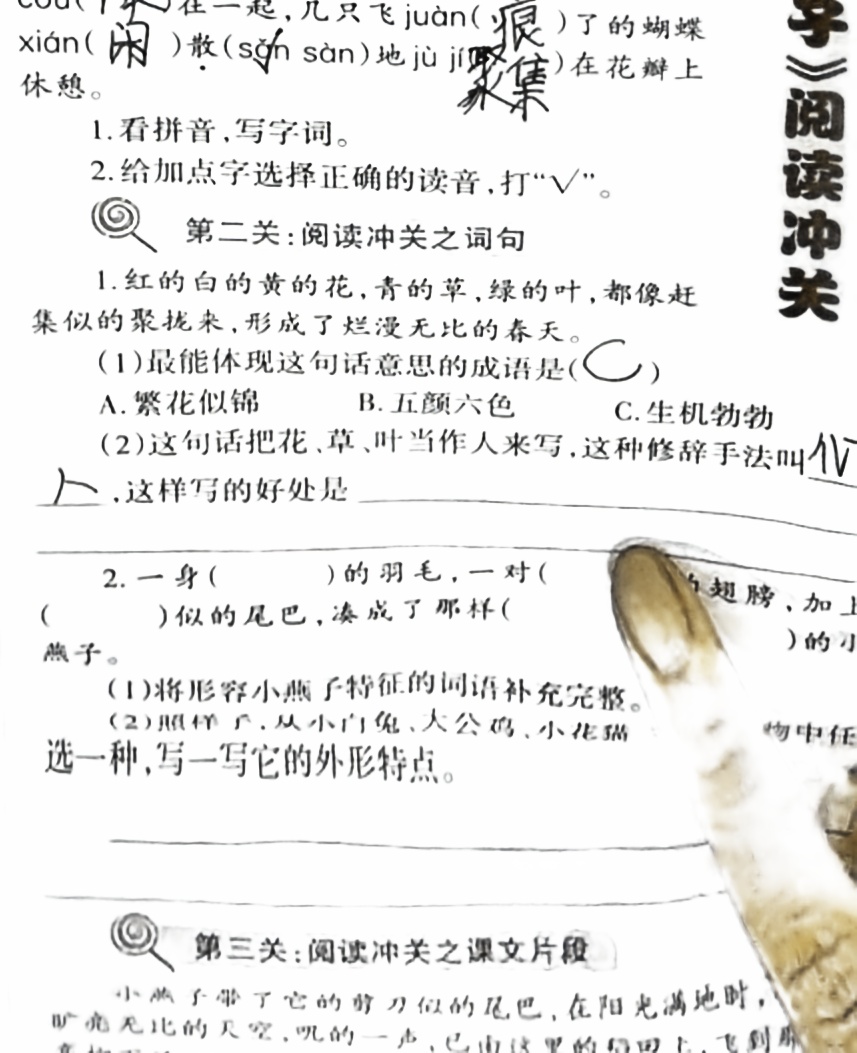 在一起,几只飞juàn(痕)了的蝴蝶
xián(闲)散(sǎn sàn)地jù jí(聚集)在花瓣上
休憩。
1.看拼音,写字词。
2.给加点字选择正确的读音,打“√”。
第二关:阅读冲关之词句
1.红的白的黄的花,青的草,绿的叶,都像赶
集似的聚拢来,形成了烂漫无比的春天。
(1)最能体现这句话意思的成语是(C)
A.繁花似锦 B.五颜六色 C.生机勃勃
(2)这句话把花、草、叶当作人来写,这种修辞手法叫
人,这样写的好处是
2.一身( )的羽毛,一对( 翅膀,加上
( )似的尾巴,凑成了那样( )的小
燕子。
(1)将形容小燕子特征的词语补充完整。
(2)照样子,从小白兔、大公鸡、小花猫 物中任
选一种,写一写它的外形特点。
第三关:阅读冲关之课文片段
小燕子带了它的剪刀似的尾巴,在阳光满地时,
旷亮无比的天空,叽的一声,已由这里的稻田上,飞到那
《阅读冲关